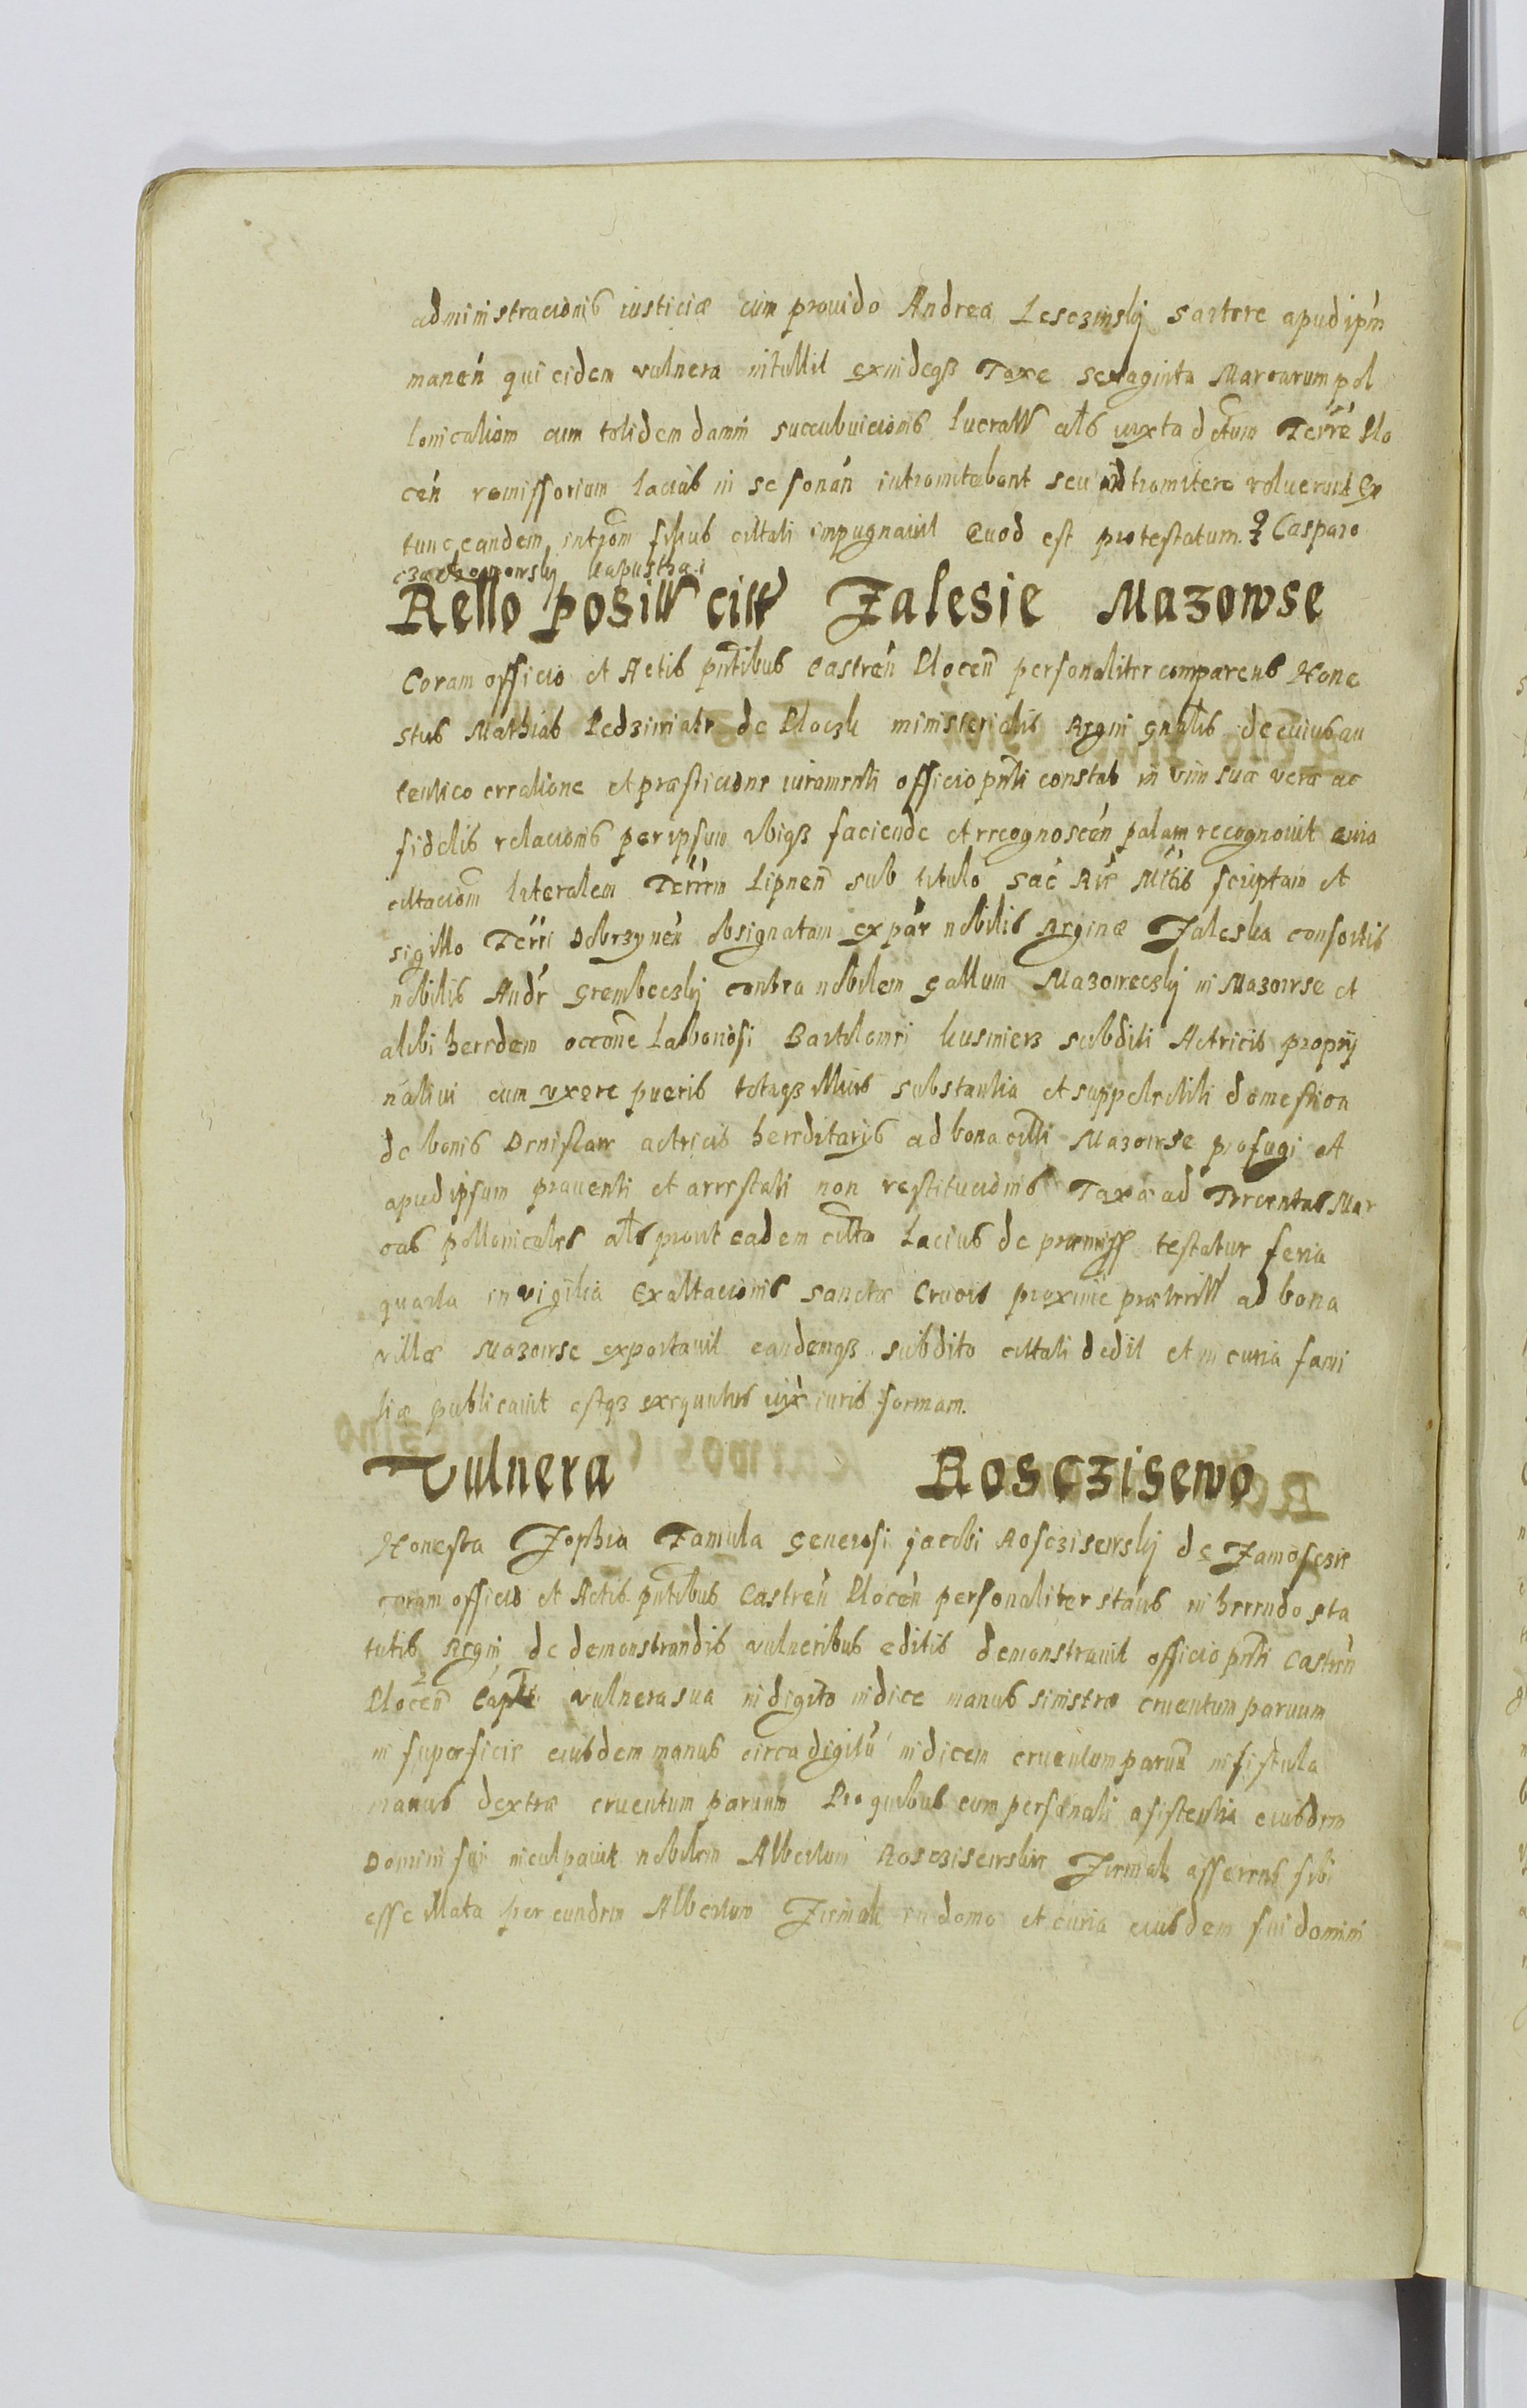 administracionis iusticiæ cum prouido Andrea Lesczinskj sartore apud ipm
manen qui eidem vulnera intullit exindeqz Taxe sexaginta Marcarum pol
lonicaliom cum totidem damni succubuicionis lucratt als iuxta dctum Terre Plo
cen remissorium lacius in se sonan intromitebant seu intromitere voluerunt Ex
tunc eandem introm filius cittati impugnauit Quod est protestatum. Casparo
kapustka
Rello positt citt Zalesie Mazowse
Coram officio et Actis pntibus Castren Plocen personaliter comparens Hone
stus Mathias Pedziwiatr de Ploczk ministerialis Regni gnalis de cuius au
tentico creatione et præsticione iuramenti officio pnti constat in vim suæ veræ ac
fidelis relacionis per ipsum vbiqz faciende et recognoscen palam recognouit quia
cittaciom literalem Terrem Lipnen sub titulo Sac Rie Mtis scriptam et
sigillo Terri Dobrzynen obsignatam ex par nobilis Reginæ Zaleska consortis
nobilis Andr Grembeczkj contra nobilem Gallum Mazoweczkj in Mazowse et
alibi heredem occone laboriosi Bartolomei kusnierz subditi Actricis proprij
natiui cum vxore pueris totaqz illius substantia et suppelectili domestica
de bonis actricis hereditarijs ad bona citti Mazowse profugi et
apud ipsum prauenti et arrestati non restitucionis Taxa ad Trecentas Mar
cas pollonicales als prout eadem citta lacius de præmiss testatur feria
quarta in vigilia Exaltacionis sanctæ Crucis proxime præteritt ad bona
villæ Mazowse exportauit eandemqz subdito cittati dedit et in curia fami
liæ publicauit estqz exequutus iux iuris formam.
Vulnera Rosczisewo
Honesta Zophia Famula Generosi jacobi Rosczisewskj de Zamoscze
coram officio et Actis pntibus Castren Plocen personaliter stans in herendo sta
tutis Regni de demonstrandis vulneribus editis demonstrauit officio pnti Castren
Plocen Capti vulnera sua in digito indice manus sinistræ cruentum paruum
in superficie eiusdem manus circa digitu indicem cruentum paruu in fistula
manus dextræ cruentum paruum Pro quibus cum personali asistentia eiusdem
Domini sui inculpauit nobilem Albertum Rosczisewskie asserens sibi
esse illata per eundem Albertum in domo et curia eiusdem sui domini